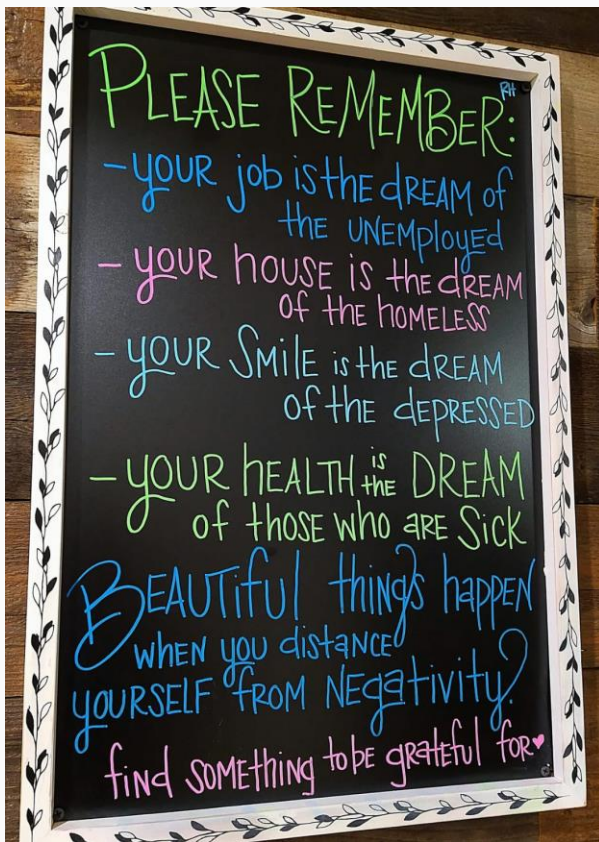 PLEASE REMEMBER:
RH
-YOUR job is the DREAM of
the UNEMPLOYED
- YOUR house is the dREAM
of the HOMELESS
- YOUR SMILE is the dREAM
of the dEPRESSED
- YOUR hEALTH is the DREAM
of those who are Sick
BEAUTiful things happen
when you distance
YOURSELF FROM NEgativity?
find SOMEthing to be grateful for♥